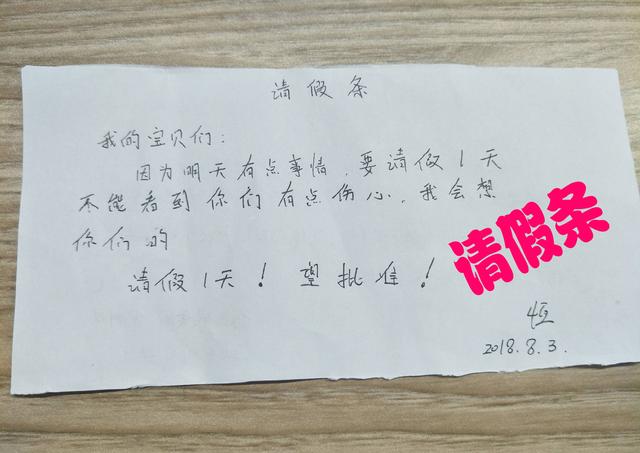 请假条
我的宝贝们：
因为明天有点事情，要请假1天
不能看到你们有点伤心，我会想
你们的
请假1天！望批准！
请假条
恒
2018.8.3.